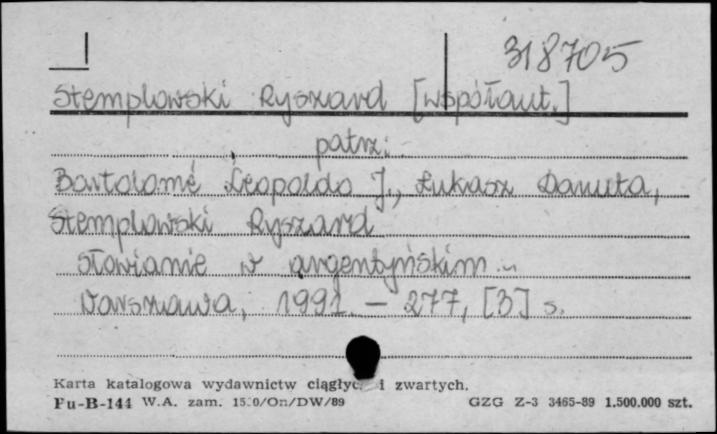 318705
Stemplowski Ryszard [współaut.]
patrz:
Bartolomé Leopoldo J., Łukasz Danuta,
Stemplowski Ryszard
Słowianie w argentyńskim ...
Warszawa, 1991. – 277, [3] s.
Karta katalogowa wydawnictw ciągłyc i zwartych.
Pu-B-144 W.A. zam. 15 0/On/DW/89 GZG Z-3 3465-89 1.500.000 szt.